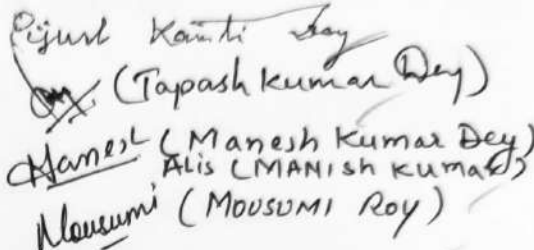 Pijush Kanti Dey
(Tapash Kumar Dey)
Manesh (Manesh Kumar Dey)
Alis (MANish Kumar)
Mousumi (MOUSUMI ROY)